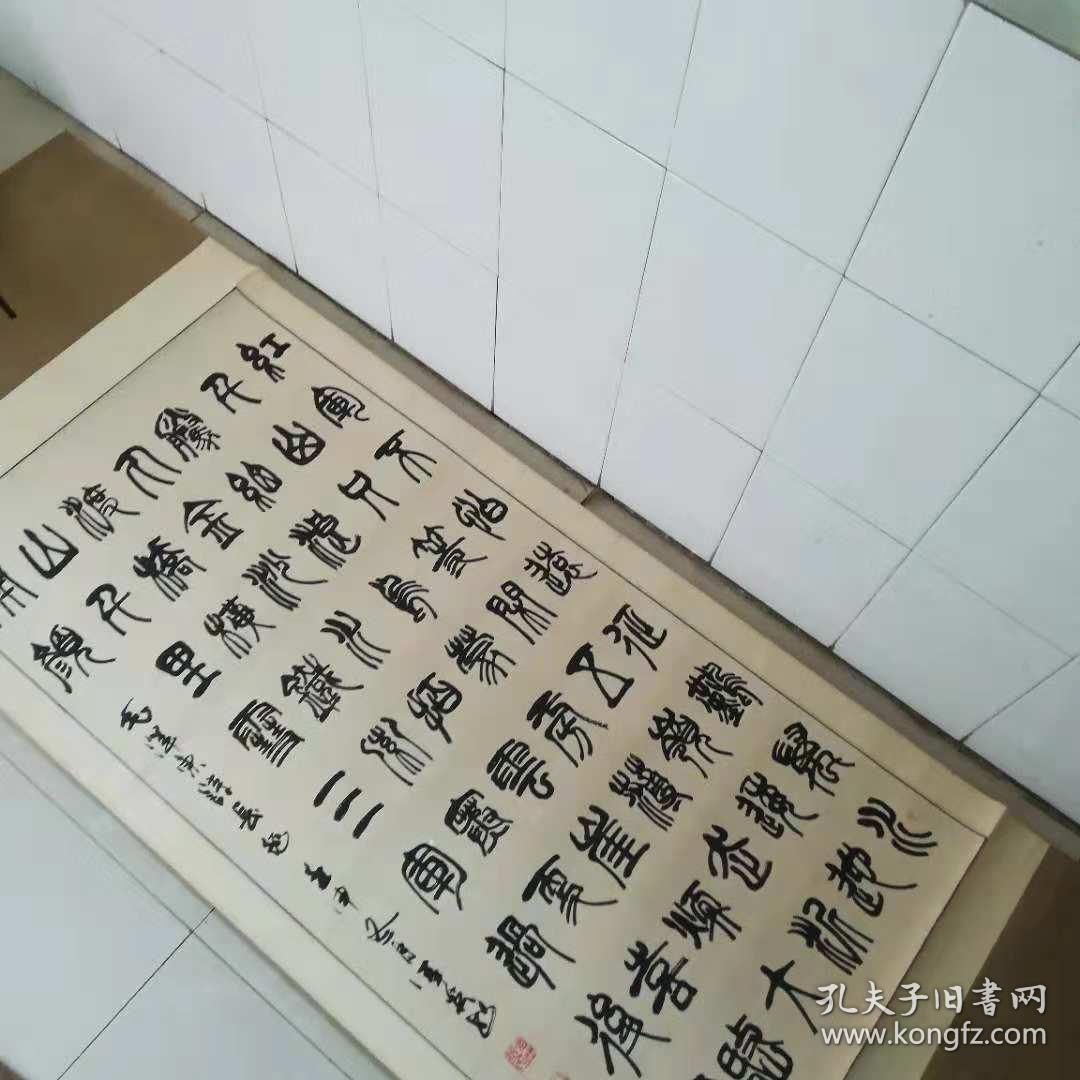 紅軍不怕遠征難萬水
千山只等閒五嶺逶迤
騰細浪烏蒙磅礴走泥
丸金沙水拍雲崖暖大
渡橋橫鐵索寒更喜岷
山千里雪三軍過後
開顏
毛澤東詩長征
孔夫子旧書网
www.kongfz.com